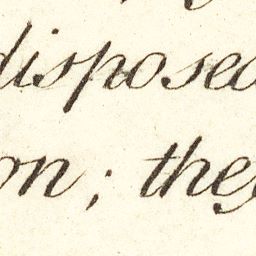 disposed
on; they